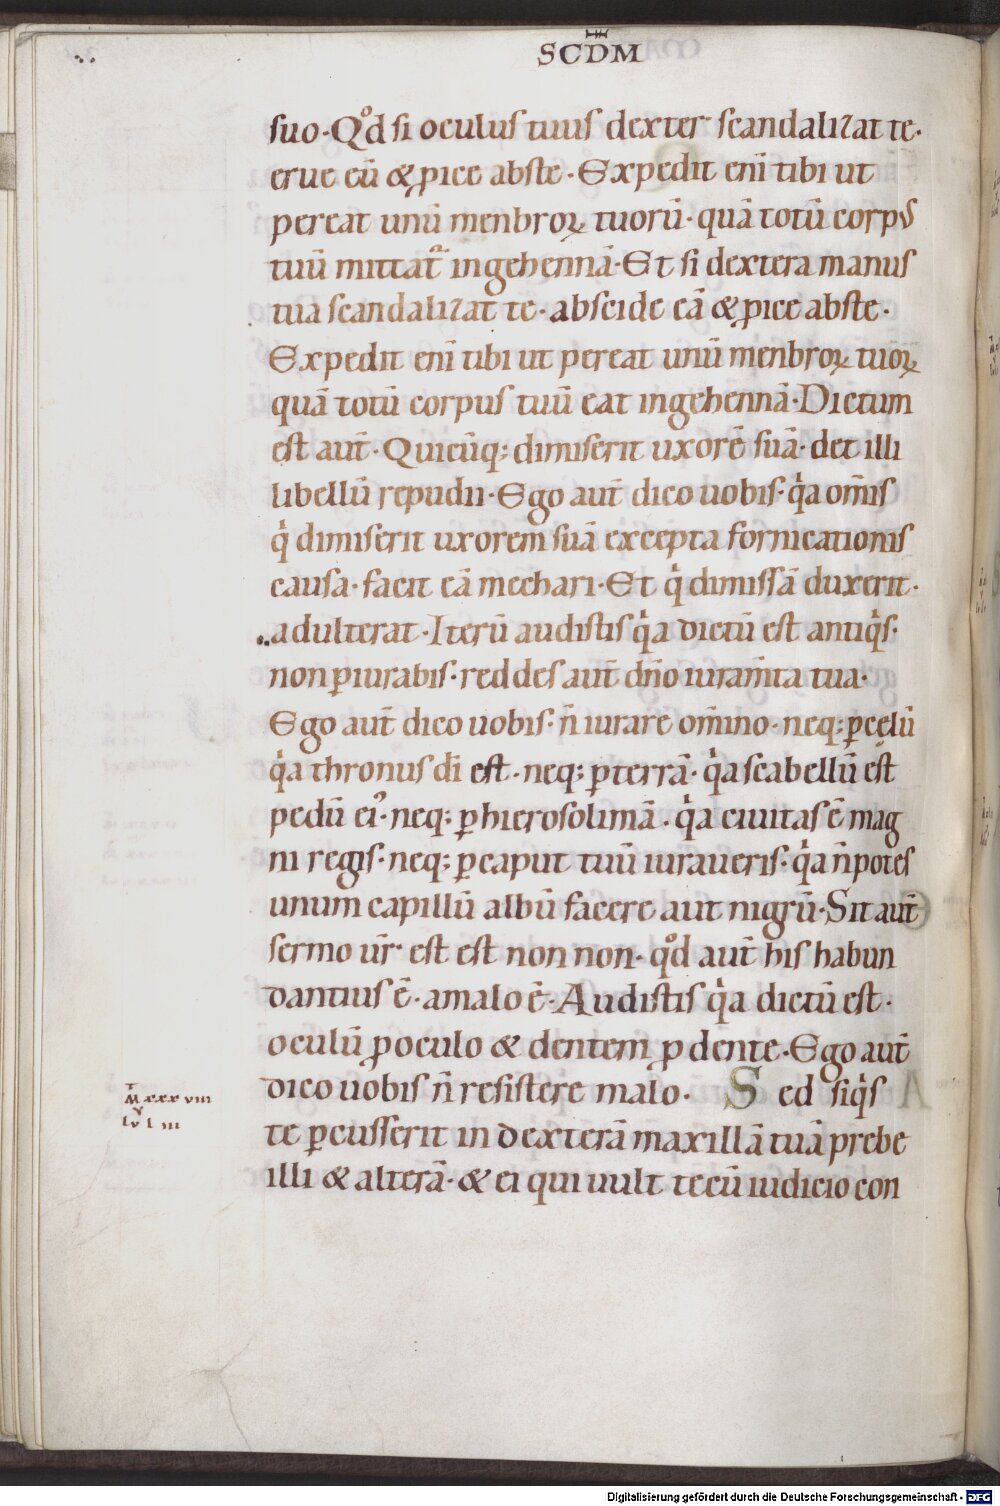 SCDM
suo·Qd̊ si oculus tuus dexter scandalizat te·
erue eū & ꝓice abste·Expedit enī tibi ut
pereat unū menbroꝝ tuorū·quā totū corpus
tuū mittat᷑ ingehennā·Et si dextera manus
tua scandalizat te·abscide eā & ꝓice abste·
Expedit enī tibi ut pereat unū menbroꝝ tuoꝝ
quā totū corpus tuū eat ingehennā·Dictum
est aut̄·Quicūq; dimiserit uxorē suā·det illi
libellū repudii·Ego aut̄ dico uobis·qͥa om̄is
qͥ dimiserit uxorem suā excepta fornicationis
causa·facit eā mechari·Et qͥ dimissā duxerit·
adulterat·Iterū audistis qͥa dictū est antiqͥs·
non ꝑiurabis·reddes aut̄ dn̄o iuram̄ta tua·
Ego aut̄ dico uobis·n̄ iurare om̄ino·neq; ꝑ cęlū
qͥa thronus dī est·neq; ꝑ terrā·qͥa scabellū est
pedū ei᾿·neq; ꝑ hierosolimā·qͥa ciuitas ē mag
ni regis·neq; ꝑ caput tuū iuraueris·qͥa n̄ potes
unum capillū albū facere aut nigrū·Sit aut̄
sermo ur̄ est est non non·qd̊ aut̄ his habun
dantius ē·amalo ē·Audistis qͥa dictū est·
oculū ꝓ oculo & dentem ꝓ dente·Ego aut̄
dico uobis n̄ resistere malo· Sed siqͥs
te ꝑcusserit in dexterā maxillā tuā prebe
illi & alterā·& ei qui uult tecū iudicio con
M xxxviii
lv l iii
Digitalisierung gefördert durch die Deutsche Forschungsgemeinschaft - DFG